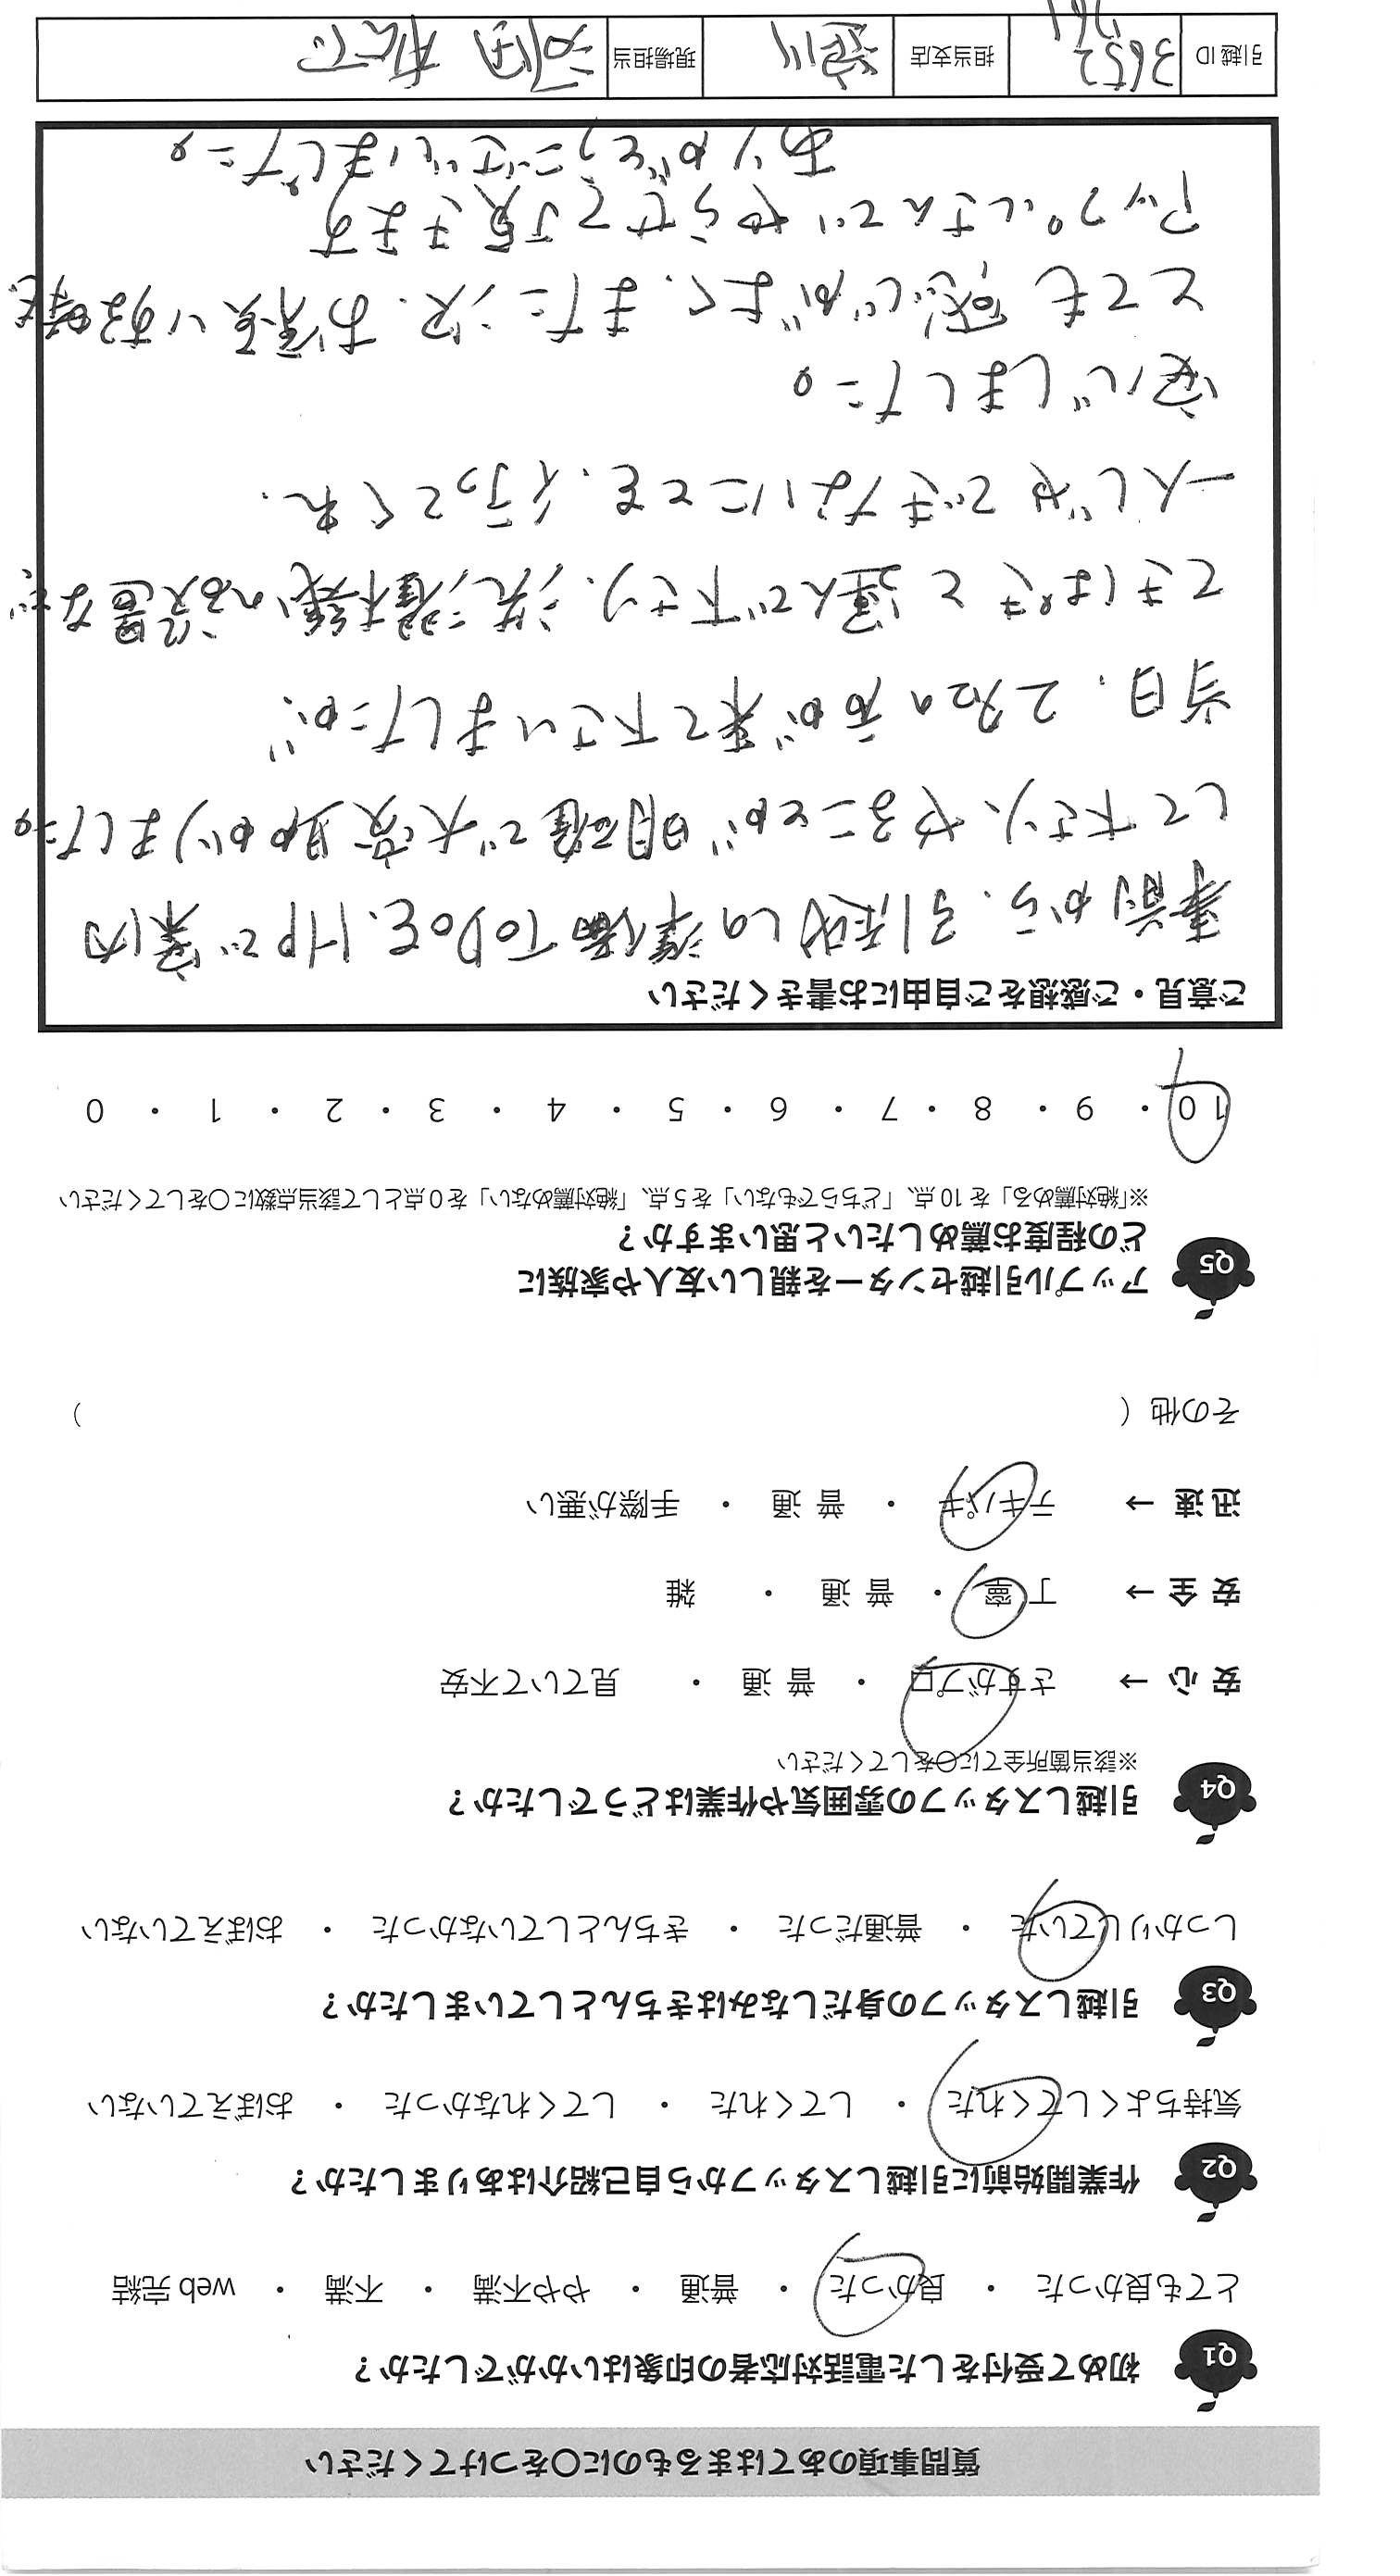 質問事項のあてはまるものに○をつけてください
Q1 初めて受付をした電話対応者の印象はいかがでしたか?
とても良かった ・ 良かった ・ 普通 ・ やや不満 ・ 不満 ・ web 完結
Q2 作業開始前に引越しスタッフから自己紹介はありましたか?
気持ちよくしてくれた ・ してくれた ・ してくれなかった ・ おぼえていない
Q3 引越しスタッフの身だしなみはきちんとしていましたか?
しっかりしていた ・ 普通だった ・ きちんとしていなかった ・ おぼえていない
Q4 引越しスタッフの雰囲気や作業はどうでしたか?
※該当箇所全てに○をしてください
安心 → さすがプロ ・ 普通 ・ 見ていて不安
安全 → 丁寧 ・ 普通 ・ 雑
迅速 → テキパキ ・ 普通 ・ 手際が悪い
その他 ( )
Q5 アップル引越センターを親しい友人や家族に
どの程度お薦めしたいと思いますか?
※「絶対薦める」を 10 点、「どちらでもない」を 5 点、「絶対薦めない」を 0 点として該当点数に○をしてください
10 ・ 9 ・ 8 ・ 7 ・ 6 ・ 5 ・ 4 ・ 3 ・ 2 ・ 1 ・ 0
ご意見・ご感想をご自由にお書きください
事前から、引越しの準備ToDoを、HPで案内
して下さり、やることが明確で大変助かりました。
当日、2名の方が来て下さいましたが、
てきぱきと運んで下さり、洗濯機の設置など、
一人じゃできないことを、行ってくれ、
安心しました。
とても感じがよく、また次、お願いする時も
アップルさんでやらせて頂きます
ありがとうございました。
引越 ID 3652 担当支店 現場担当